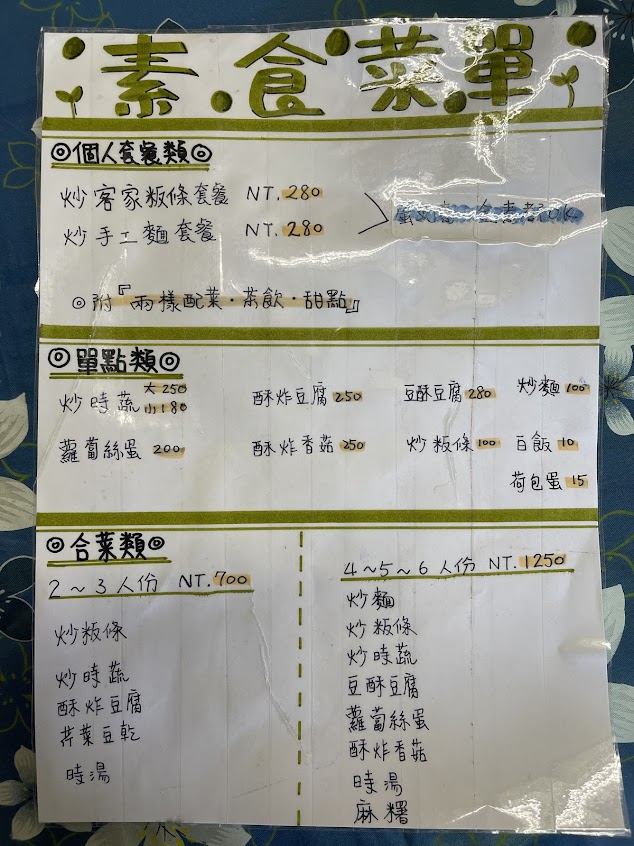 素食菜單
◎個人套餐類◎
炒客家粄條套餐 NT.280
炒手工麵套餐 NT.280
◎附『兩樣配菜·茶飲·甜點』
◎單點類◎
炒時蔬 大250 小180 酥炸豆腐250 豆酥豆腐280 炒麵100
蘿蔔絲蛋 200 酥炸香菇250 炒粄條100 白飯10
荷包蛋15
◎合菜類◎
2~3人份 NT.700
炒粄條
炒時蔬
酥炸豆腐
芹菜豆乾
時湯
4~5~6人份 NT.1250
炒麵
炒粄條
炒時蔬
豆酥豆腐
蘿蔔絲蛋
酥炸香菇
時湯
麻糬